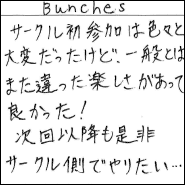 Bunches
サークル初参加は色々と
大変だったけど、一般とは
また違った楽しさがあって
良かった！
次回以降も是非
サークル側でやりたい…